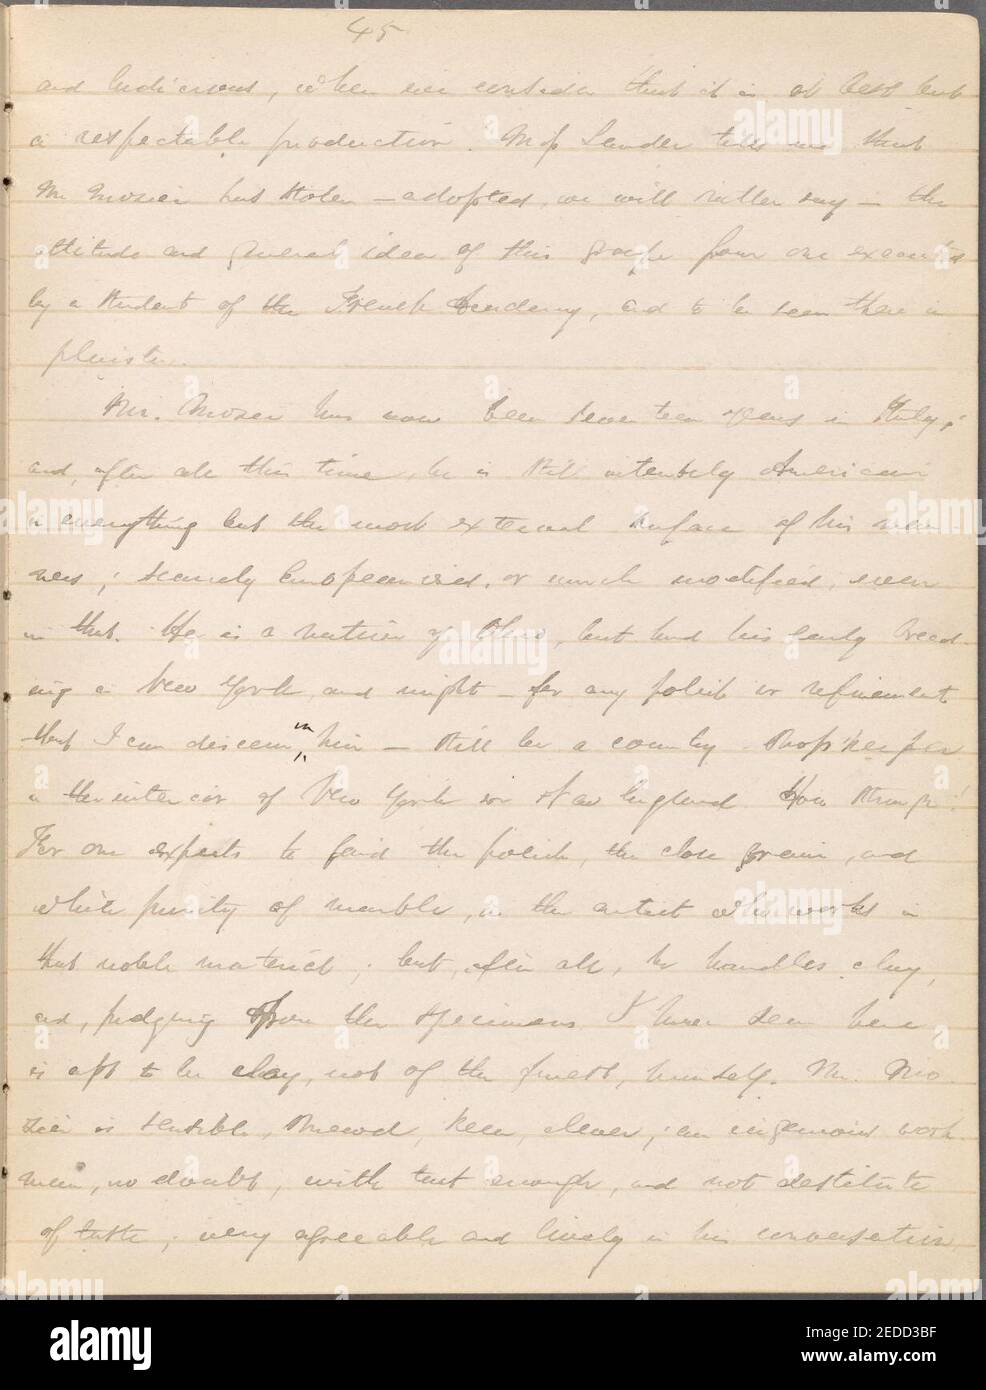 45
and ludicrous, when we consider that it is at best but
a respectable production. Miss Lander tells me that
Mr. Mosier has stolen — adopted, we will rather say — the
attitude and general idea of this group from one executed
by a student of the French Academy, and to be seen there in
plaister.
Mr. Mosier has now been seventeen years in Italy;
and, after all this time, he is still intensely American
in everything but the most external surface of his man-
ners; scarcely Europeanized, or much modified, even
in that. He is a native of Ohio, but had his early breed-
ing in New York, and might — for any polish or refinement
that I can discern in him — still be a country shopkeeper
in the interior of New York or New England. How strange!
For one expects to find the polish, the close grain, and
white purity of marble, in the artist who works in
that noble material; but, after all, he handles clay,
and, judging from the specimens I have seen here
is apt to be clay, not of the finest, himself. Mr. Mo-
sier is sensible, shrewd, keen, clever; an ingenious work-
man, no doubt, with tact enough, and not destitute
of taste; very agreeable and lively in his conversation
alamy
Image ID: 2EDD3BF
www.alamy.com